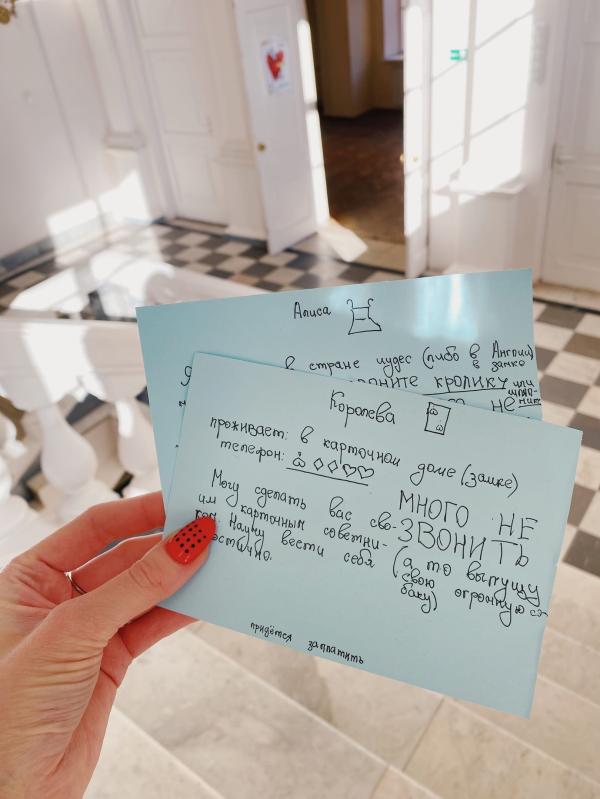 Алиса
в стране чудес (либо в Англии)
в замке
звоните кролику или
не
Королева
проживает: в карточном доме (замке)
телефон:
Могу сделать вас сво-
им карточным советни-
ком. Научу вести себя
МНОГО НЕ
ЗВОНИТЬ
(а то выпущу
свою огромную со-
баку)
придётся заплатить